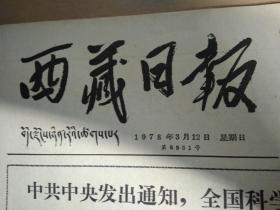 西藏日报
1978年3月12日 星期日
第6951号
中共中央发出通知，全国科学